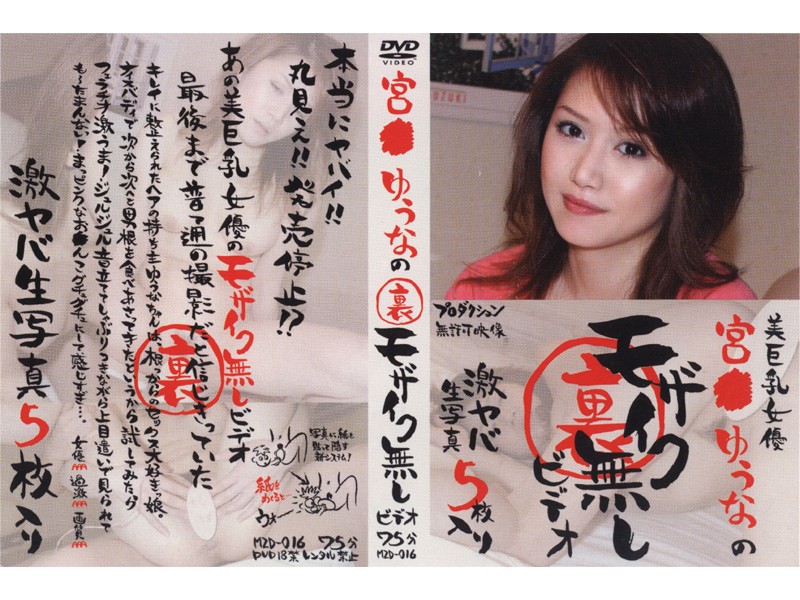 本当にヤバイ!!
丸見え!!発売停止!?
あの美巨乳女優のモザイク無しビデオ
最後まで普通の撮影だと信じきっていた
キレイに整えられたヘアの持ち主ゆうなちゃんは、根っからのセックス大好きっ娘。
ナイスバディで次から次へと男根を食べあさってきたというから試してみたが
フェラチオ激うま!ジュルジュル音立ててしゃぶりつきながら上目遣いで見られて
も〜たまんない!まっピンクなお●んこグチュグチュにして感じすぎ…。
女優AAA 過激AAA 画質AAA
激ヤバ生写真5枚入り
裏
写真に紙を
貼って隠す
新システム!
紙を
めくると
ウォー
MZD-016 75分
DVD 18禁 レンタル禁止
DVD
VIDEO
宮● ゆうなの
裏
モザイク無し
ビデオ
75分
MZD-016
UZUKI
プロダクション
無許可映像
美巨乳女優
宮● ゆうなの
裏
モザイク無し
ビデオ
激ヤバ
生写真
5枚
入り